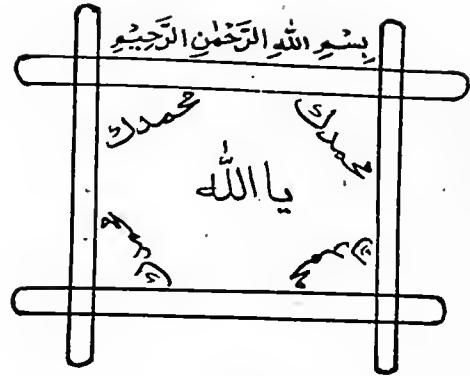 بِسْمِ اللهِ الرَّحْمٰنِ الرَّحِيْمِ
محمدك
محمدك
يا اللّٰه
محمدك
محمدك